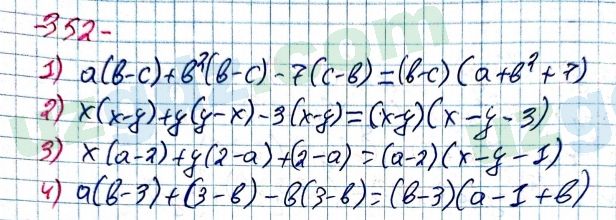 -352-
1) a(b-c)+b²(b-c)-7(c-b)=(b-c)(a+b²+7)
2) x(x-y)+y(y-x)-3(x-y)=(x-y)(x-y-3)
3) x(a-2)+y(2-a)+(2-a)=(a-2)(x-y-1)
4) a(b-3)+(3-b)-b(3-b)=(b-3)(a-1+b)